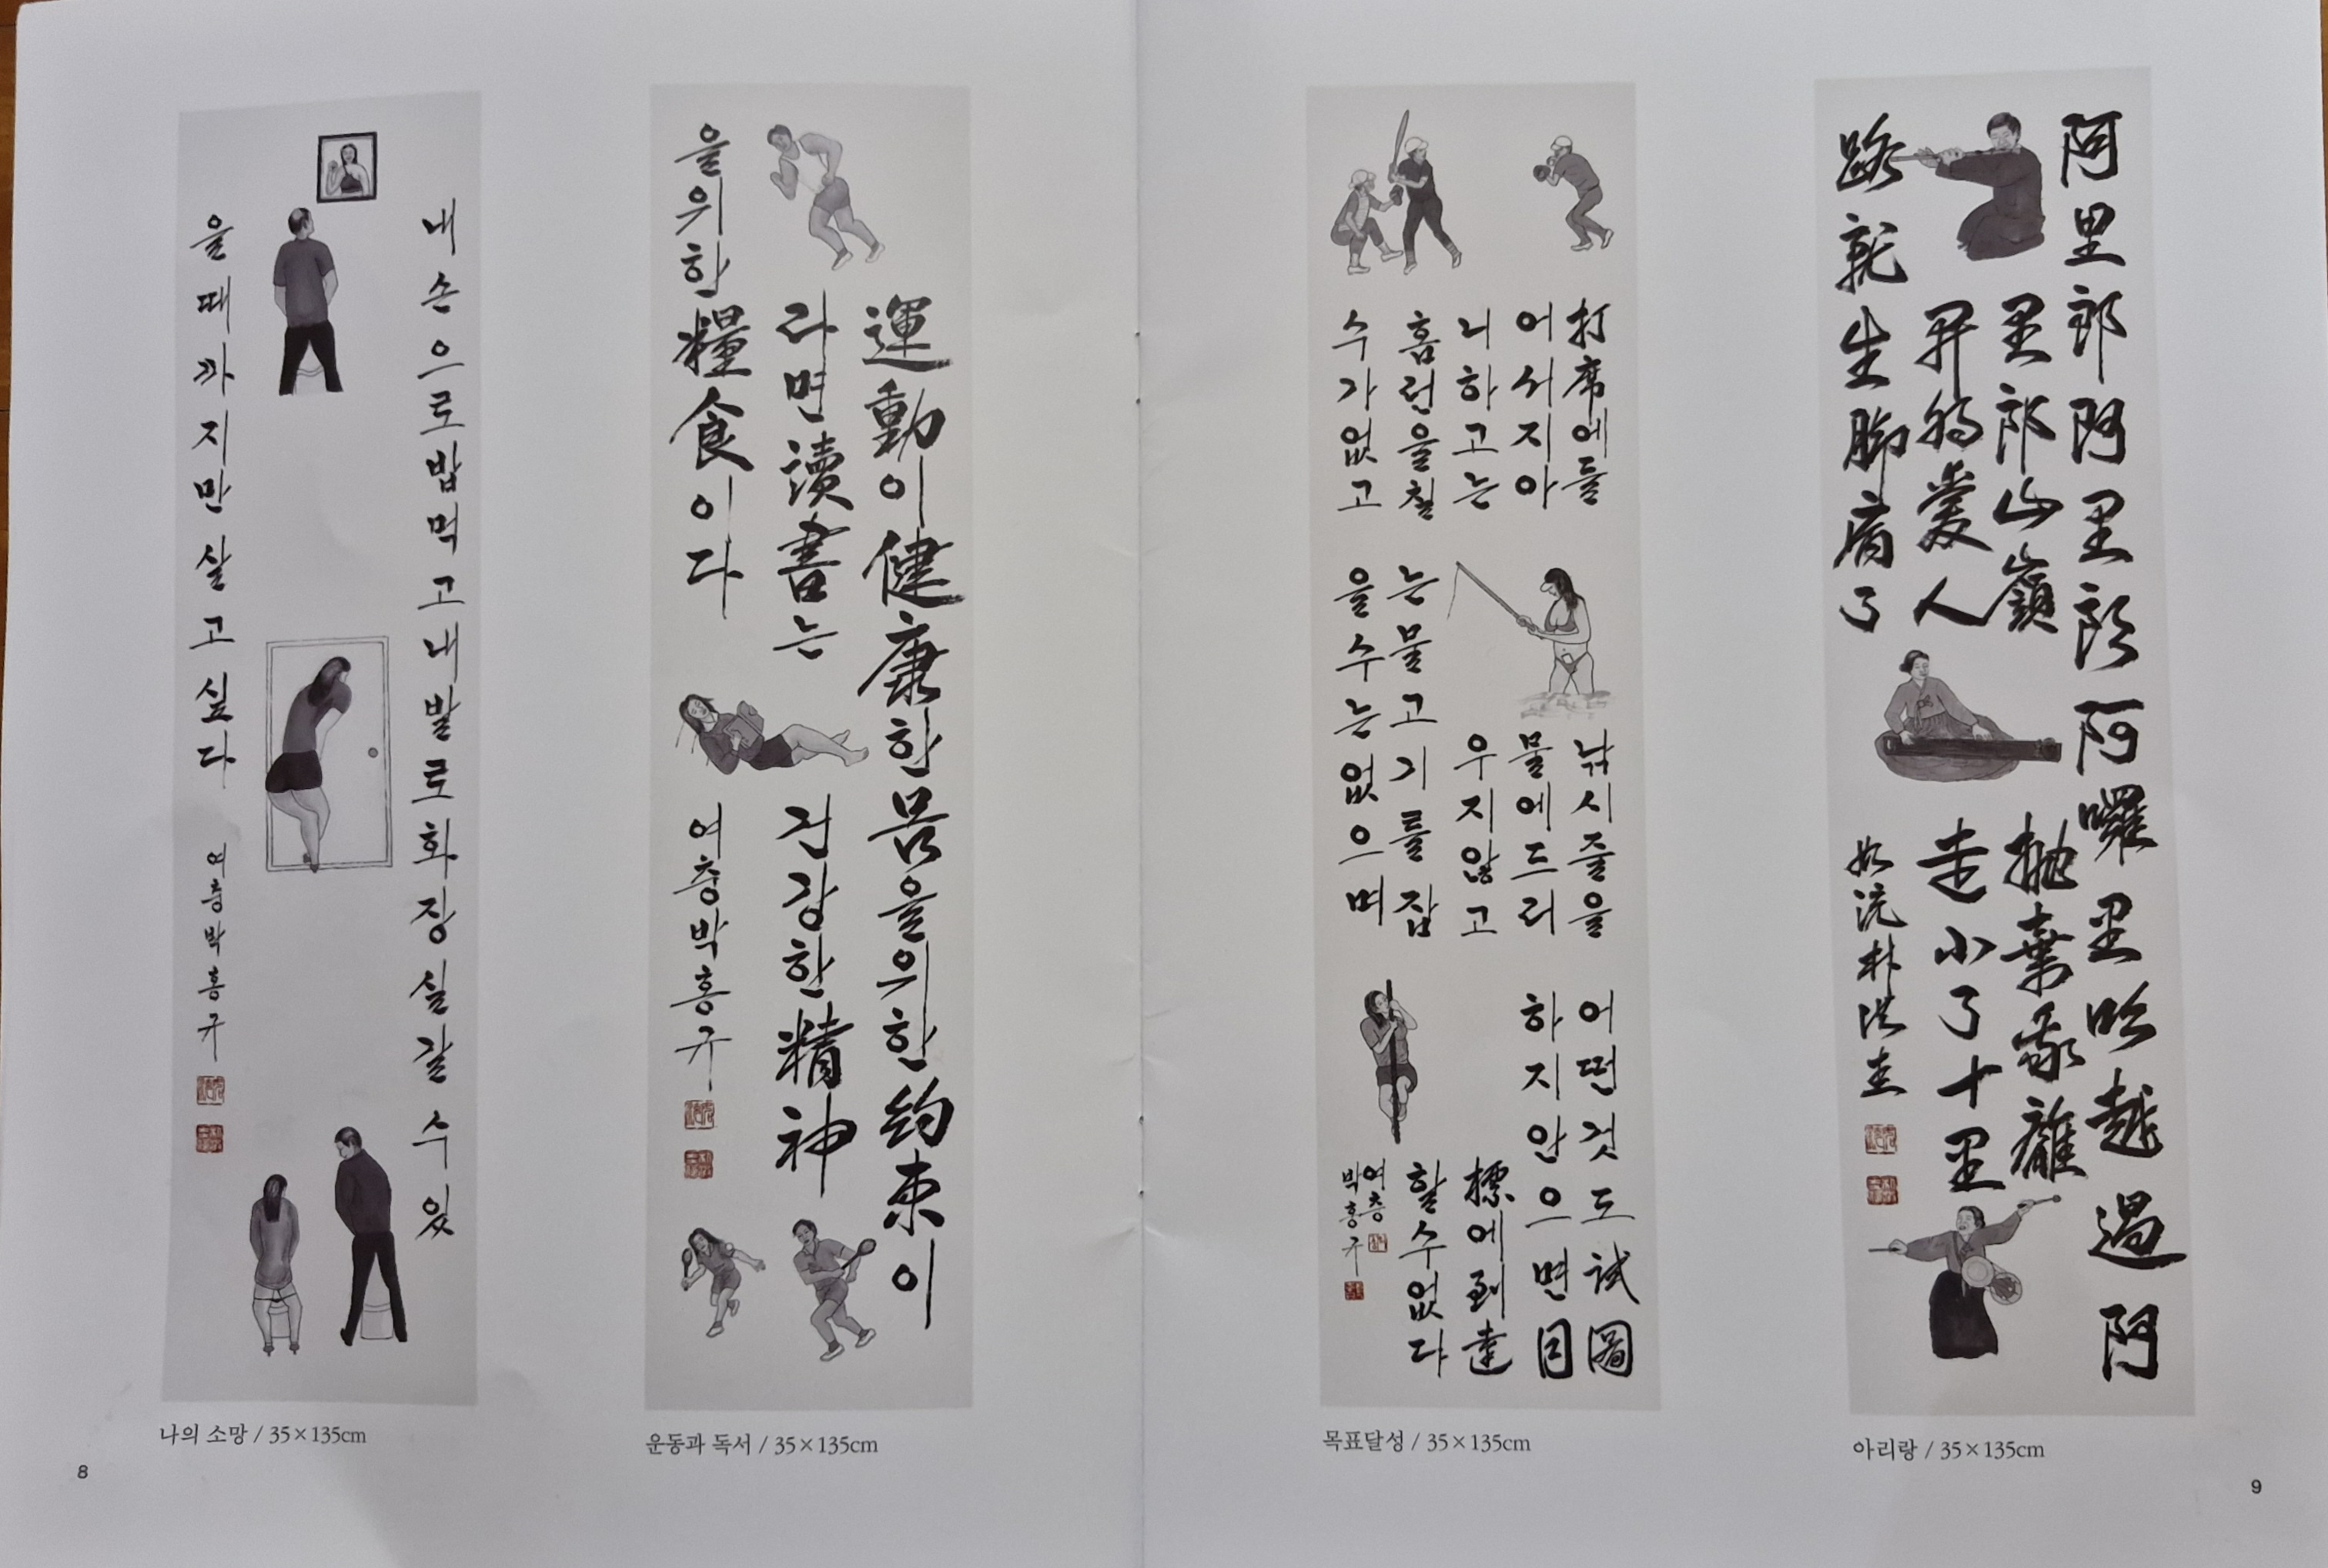 내손으로밥먹고내발로화장실갈수있
을때까지만살고싶다
여충박홍규
나의 소망 / 35×135cm
8
運動이健康한몸을위한約束이
라면讀書는
건강한精神
을위한糧食이다
여충박홍규
운동과 독서 / 35×135cm
打席에들
어서지아
니하고는
홈런을칠
수가없고
낚시줄을
물에드리
우지않고
는물고기를잡
을수는없으며
어떤것도試圖
하지안으면目
標에到達
할수없다
여충
박홍규
목표달성 / 35×135cm
阿里郎阿里郎阿囉里吆越過阿
里郎山嶺
抛棄我離
开的爱人
走不了十里
路就生脚病了
朴洪圭
아리랑 / 35×135cm
9